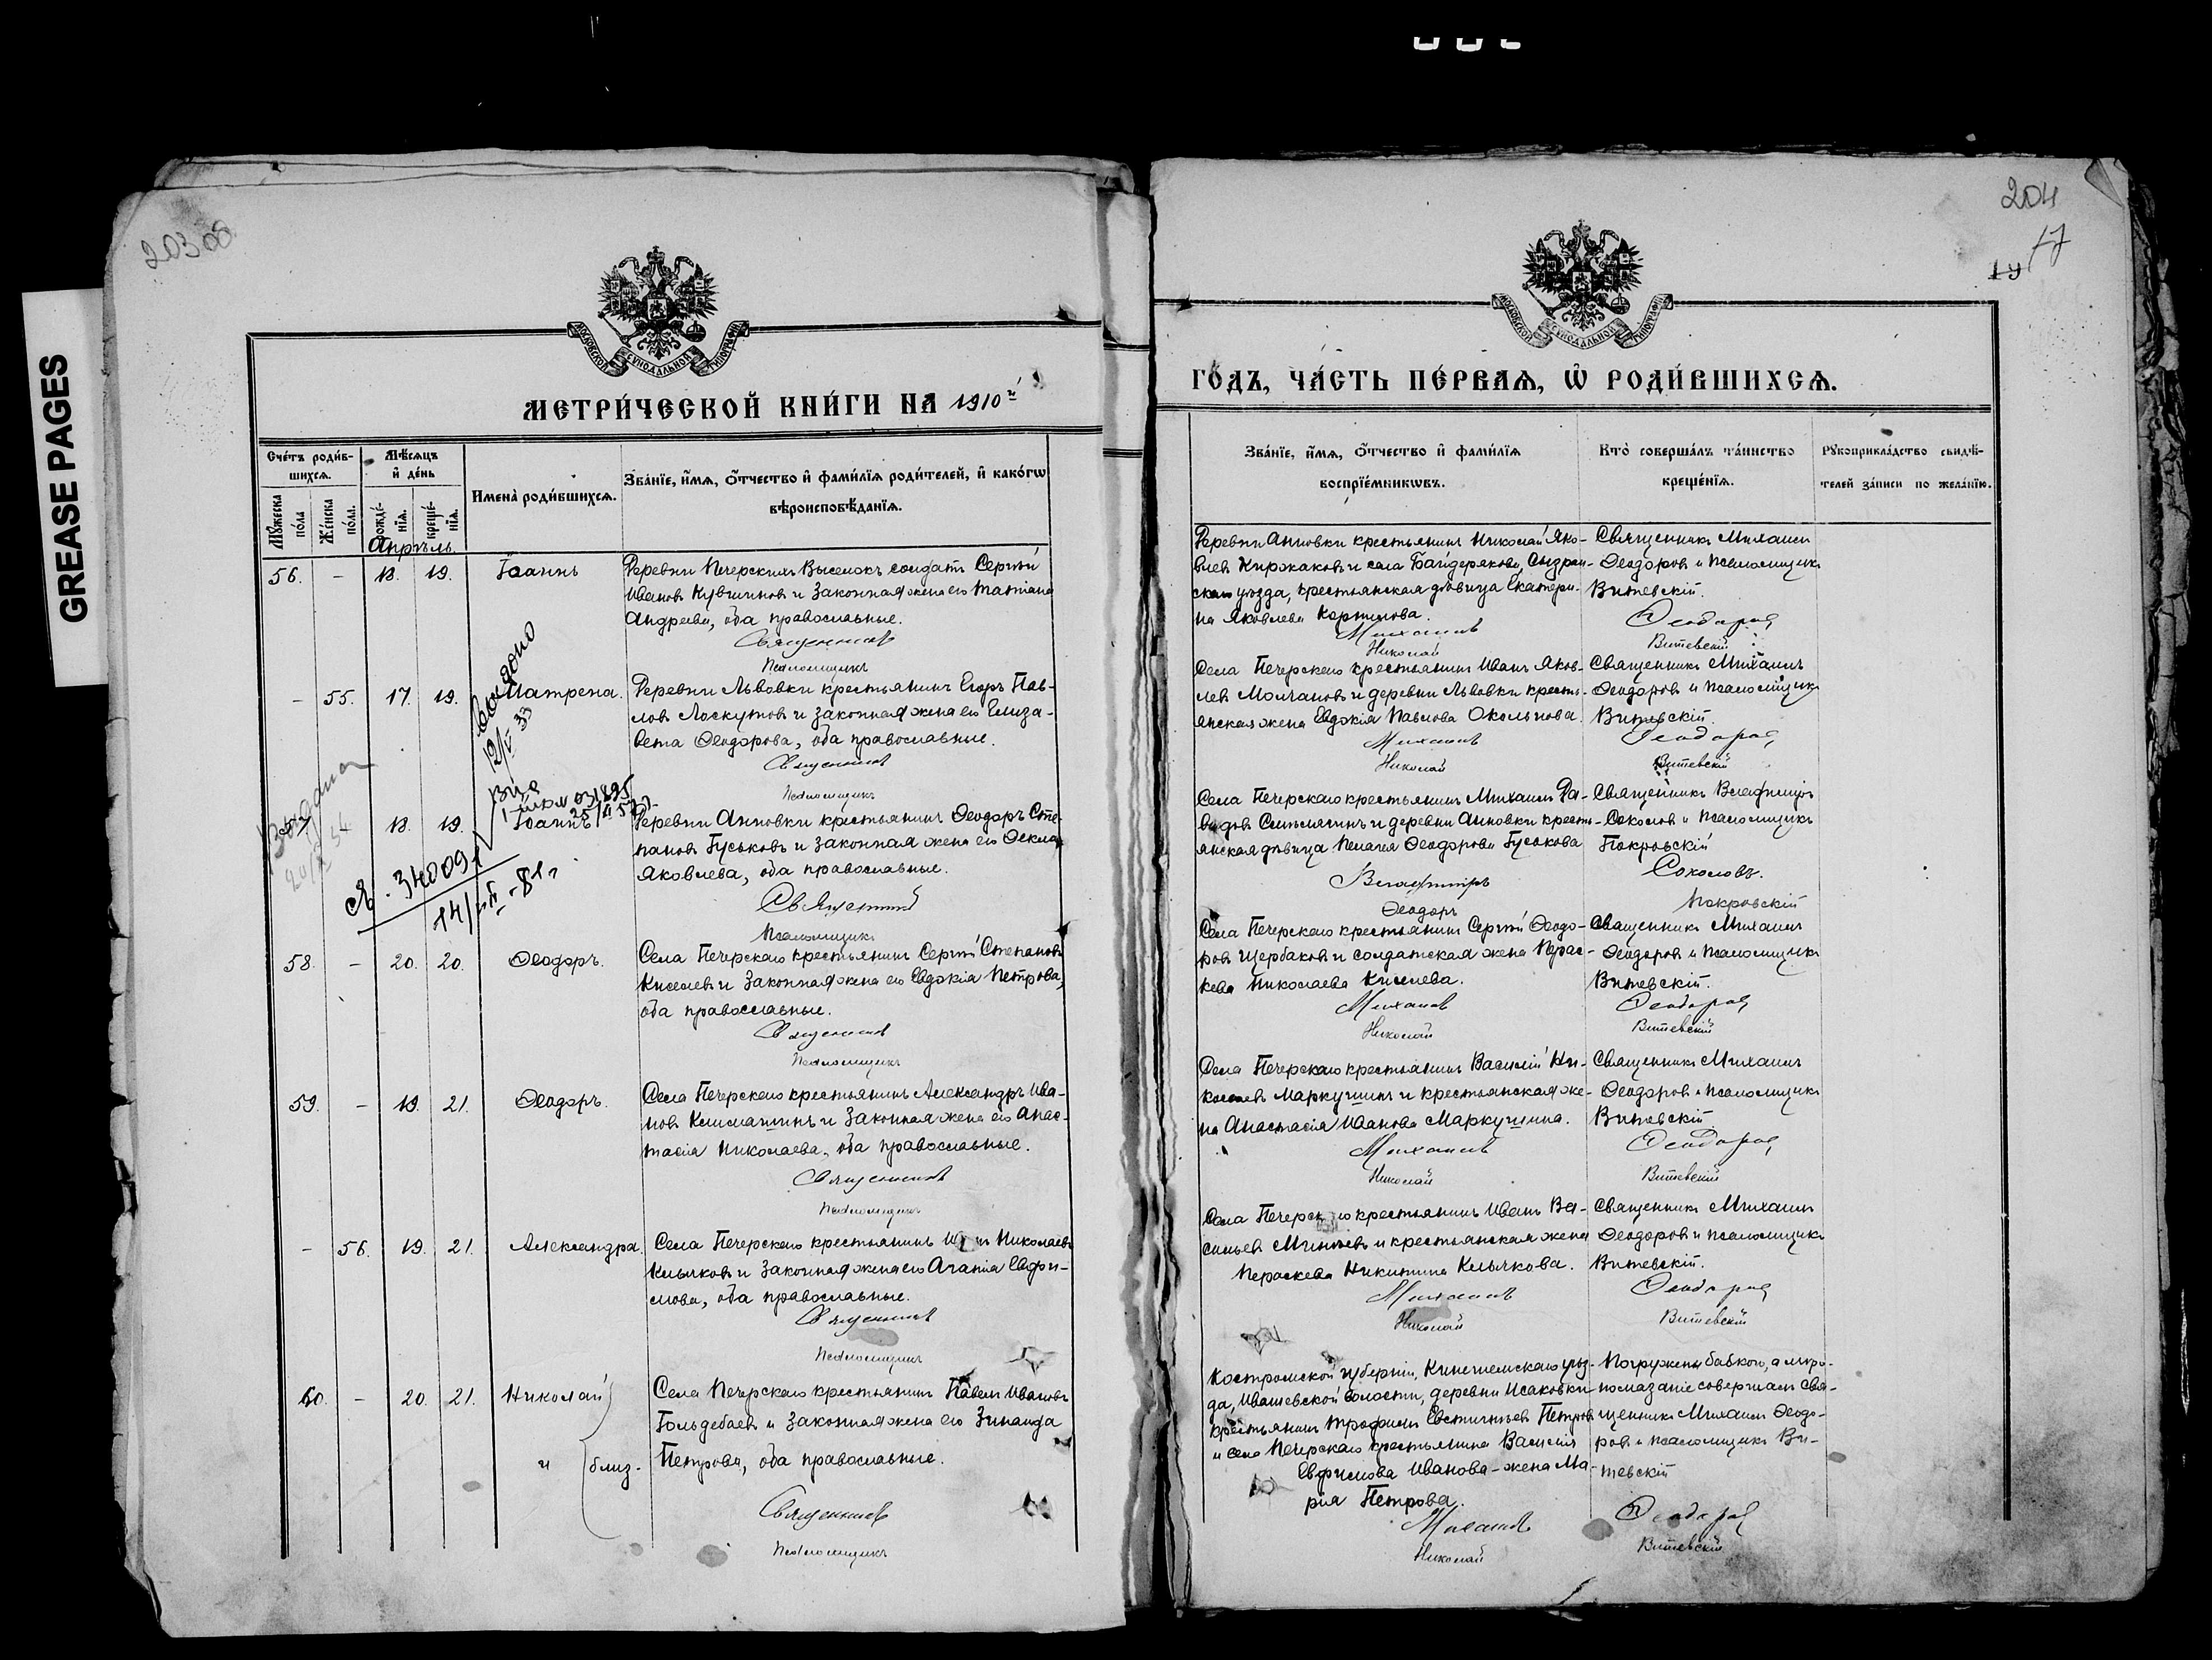 GREASE PAGES
203об
204
17
19
МОСКОВСКОЙ СѴНОДАЛЬНОЙ ТИПОГРАФІИ
МЕТРИ́ЧЕСКОЙ КНИ́ГИ НА 1910й
Сче́тъ роди́в-
шихся.
Мѣ́сяцъ
и҆ де́нь
Мꙋ́жеска
по́ла
Же́нска
по́ла.
рожде́-
нїѧ.
креще́-
нїѧ.
Имена̀ роди́вшихсѧ.
Зва́нїе, и҆́мѧ, ѻ҆́тчество и҆ фами́лїѧ роди́телей, и҆ како́гѡ
вѣроисповѣ́данїѧ.
Апрѣль.
56. – 18. 19. Іоаннъ
Деревни Печерскихъ Выселокъ солдатъ Сергѣй
Ивановъ Кувшиновъ и законная жена его Татіана
Андреева, оба православные.
Священникъ
Псаломщикъ
– 55. 17. 19. Матрена.
Деревни Львовки крестьянинъ Егоръ Пав-
ловъ Лоскутовъ и законная жена его Елиза-
вета Ѳеодорова, оба православные.
Священникъ
Псаломщикъ
выдано
12/V 33
18. 19. Іоаннъ
Деревни Анновки крестьянинъ Ѳеодоръ Сте-
пановъ Гуськовъ и законная жена его Ѳекла
Яковлева, оба православные.
Священникъ
Псаломщикъ
34009
58. – 20. 20. Ѳеодоръ.
Села Печерскаго крестьянинъ Сергѣй Степановъ
Киселевъ и законная жена его Евдокія Петрова,
оба православные.
Священникъ
Псаломщикъ
59. – 19. 21. Ѳеодоръ.
Села Печерскаго крестьянинъ Александръ Ива-
новъ Климашинъ и законная жена его Анас-
тасія Николаева, оба православные.
Священникъ
Псаломщикъ
– 56. 19. 21. Александра.
Села Печерскаго крестьянинъ Николаевъ
Клычковъ и законная жена его Агапія Евфи-
мова, оба православные.
Священникъ
Псаломщикъ
60. – 20. 21. Николай
и близ-
Села Печерскаго крестьянинъ Павелъ Ивановъ
Гольдебаевъ и законная жена его Зинаида
Петрова, оба православные.
Священникъ
Псаломщикъ
МОСКОВСКОЙ СѴНОДАЛЬНОЙ ТИПОГРАФІИ
ГО́ДЪ, ЧА́СТЬ ПЕ́РВАѦ, Ѡ҆ РОДИ́ВШИХСѦ.
Зва́нїе, и҆́мѧ, ѻ҆́тчество и҆ фами́лїѧ
воспрїе́мникѡвъ.
Кто̀ соверша́лъ та́инство
креще́нїѧ.
Рꙋкоприкла́дство свидѣ́-
телей за́писи по жела́нїю.
Деревни Анновки крестьянинъ Николай Яко-
влевъ и села Байдеряково, Сызран-
скаго уѣзда, крестьянская дѣвица Екатери-
на Яковлева
Михаилъ
Николай
Священникъ Михаилъ
Ѳеодоровъ и псаломщикъ
Витевскій.
Ѳеодоровъ
Витевскій
Села Печерскаго крестьянинъ Иванъ Яков-
левъ Молчановъ и деревни Львовки кресть-
янская жена Евдокія Павлова Окольнова.
Михаилъ
Николай
Священникъ Михаилъ
Ѳеодоровъ и псаломщикъ
Витевскій.
Ѳеодоровъ
Витевскій
Села Печерскаго крестьянинъ Михаилъ Да-
видовъ и деревни Анновки кресть-
янская дѣвица Пелагея Ѳеодорова Гуськова
Владиміръ
Ѳеодоръ
Священникъ Владиміръ
Соколовъ и псаломщикъ
Покровскій
Соколовъ.
Покровскій
Села Печерскаго крестьянинъ Сергѣй Ѳеодо-
ровъ Щербаковъ и солдатская жена Парас-
кева Николаева Киселева.
Михаилъ
Николай
Священникъ Михаилъ
Ѳеодоровъ и псаломщикъ
Витевскій.
Ѳеодоровъ
Витевскій
Села Печерскаго крестьянинъ Василій Ни-
колаевъ Маркушинъ и крестьянская же-
на Анастасія Иванова Маркушина.
Михаилъ
Николай
Священникъ Михаилъ
Ѳеодоровъ и псаломщикъ
Витевскій
Ѳеодоровъ
Витевскій
Села Печерскаго крестьянинъ Иванъ Ва-
сильевъ и крестьянская жена
Параскева Никитина Клычкова.
Михаилъ
Николай
Священникъ Михаилъ
Ѳеодоровъ и псаломщикъ
Витевскій.
Ѳеодоровъ
Витевскій
Костромской губерніи, Кинешемскаго уѣз-
да, Ивашевской волости, деревни Исаковки
крестьянинъ Трофимъ Евстигнѣевъ Петровъ
и села Печерскаго крестьянина Василія
Евфимова Иванова – жена Ма-
рія Петрова.
Михаилъ
Николай
Погружены бабкою, а мѵро-
помазаніе совершалъ свя-
щенникъ Михаилъ Ѳеодо-
ровъ и псаломщикъ Ви-
тевскій
Ѳеодоровъ
Витевскій